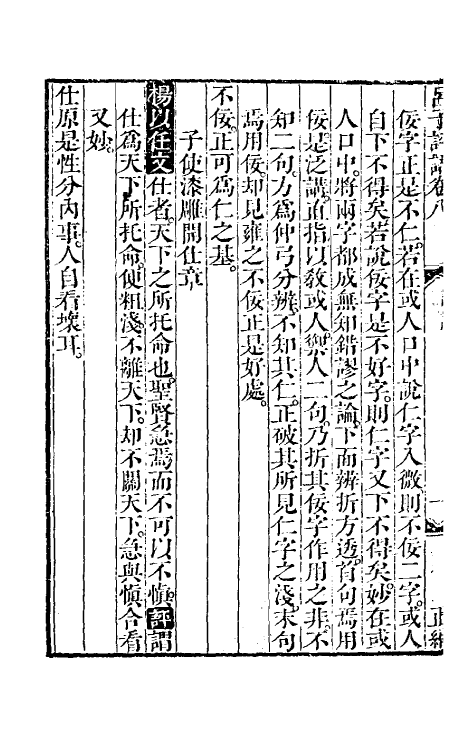 呂子評語卷八
一
正編
佞字正是不仁。若在或人口中說仁字入微則不佞二字。或人
自下不得矣若說佞字是不好字。則仁字又下不得矣。妙在或
人口中。將兩字都成無知錯謬之論。下面辨折方透。首句焉用
佞是泛講。直指以教或人禦人二句。乃折其佞字作用之非。不
知二句。方為仲弓分辨。不知其仁。正破其所見仁字之淺。末句
焉用佞。却見雍之不佞正是好處。
不佞。正可為仁之基。
子使漆雕開仕章
楊以任文仕者。天下之所托命也。聖賢急焉而不可以不慎。評謂
仕為天下所托命。便粗淺不離天下。却不關天下。急與慎合看
又妙。
仕原是性分內事。人自看壞耳。